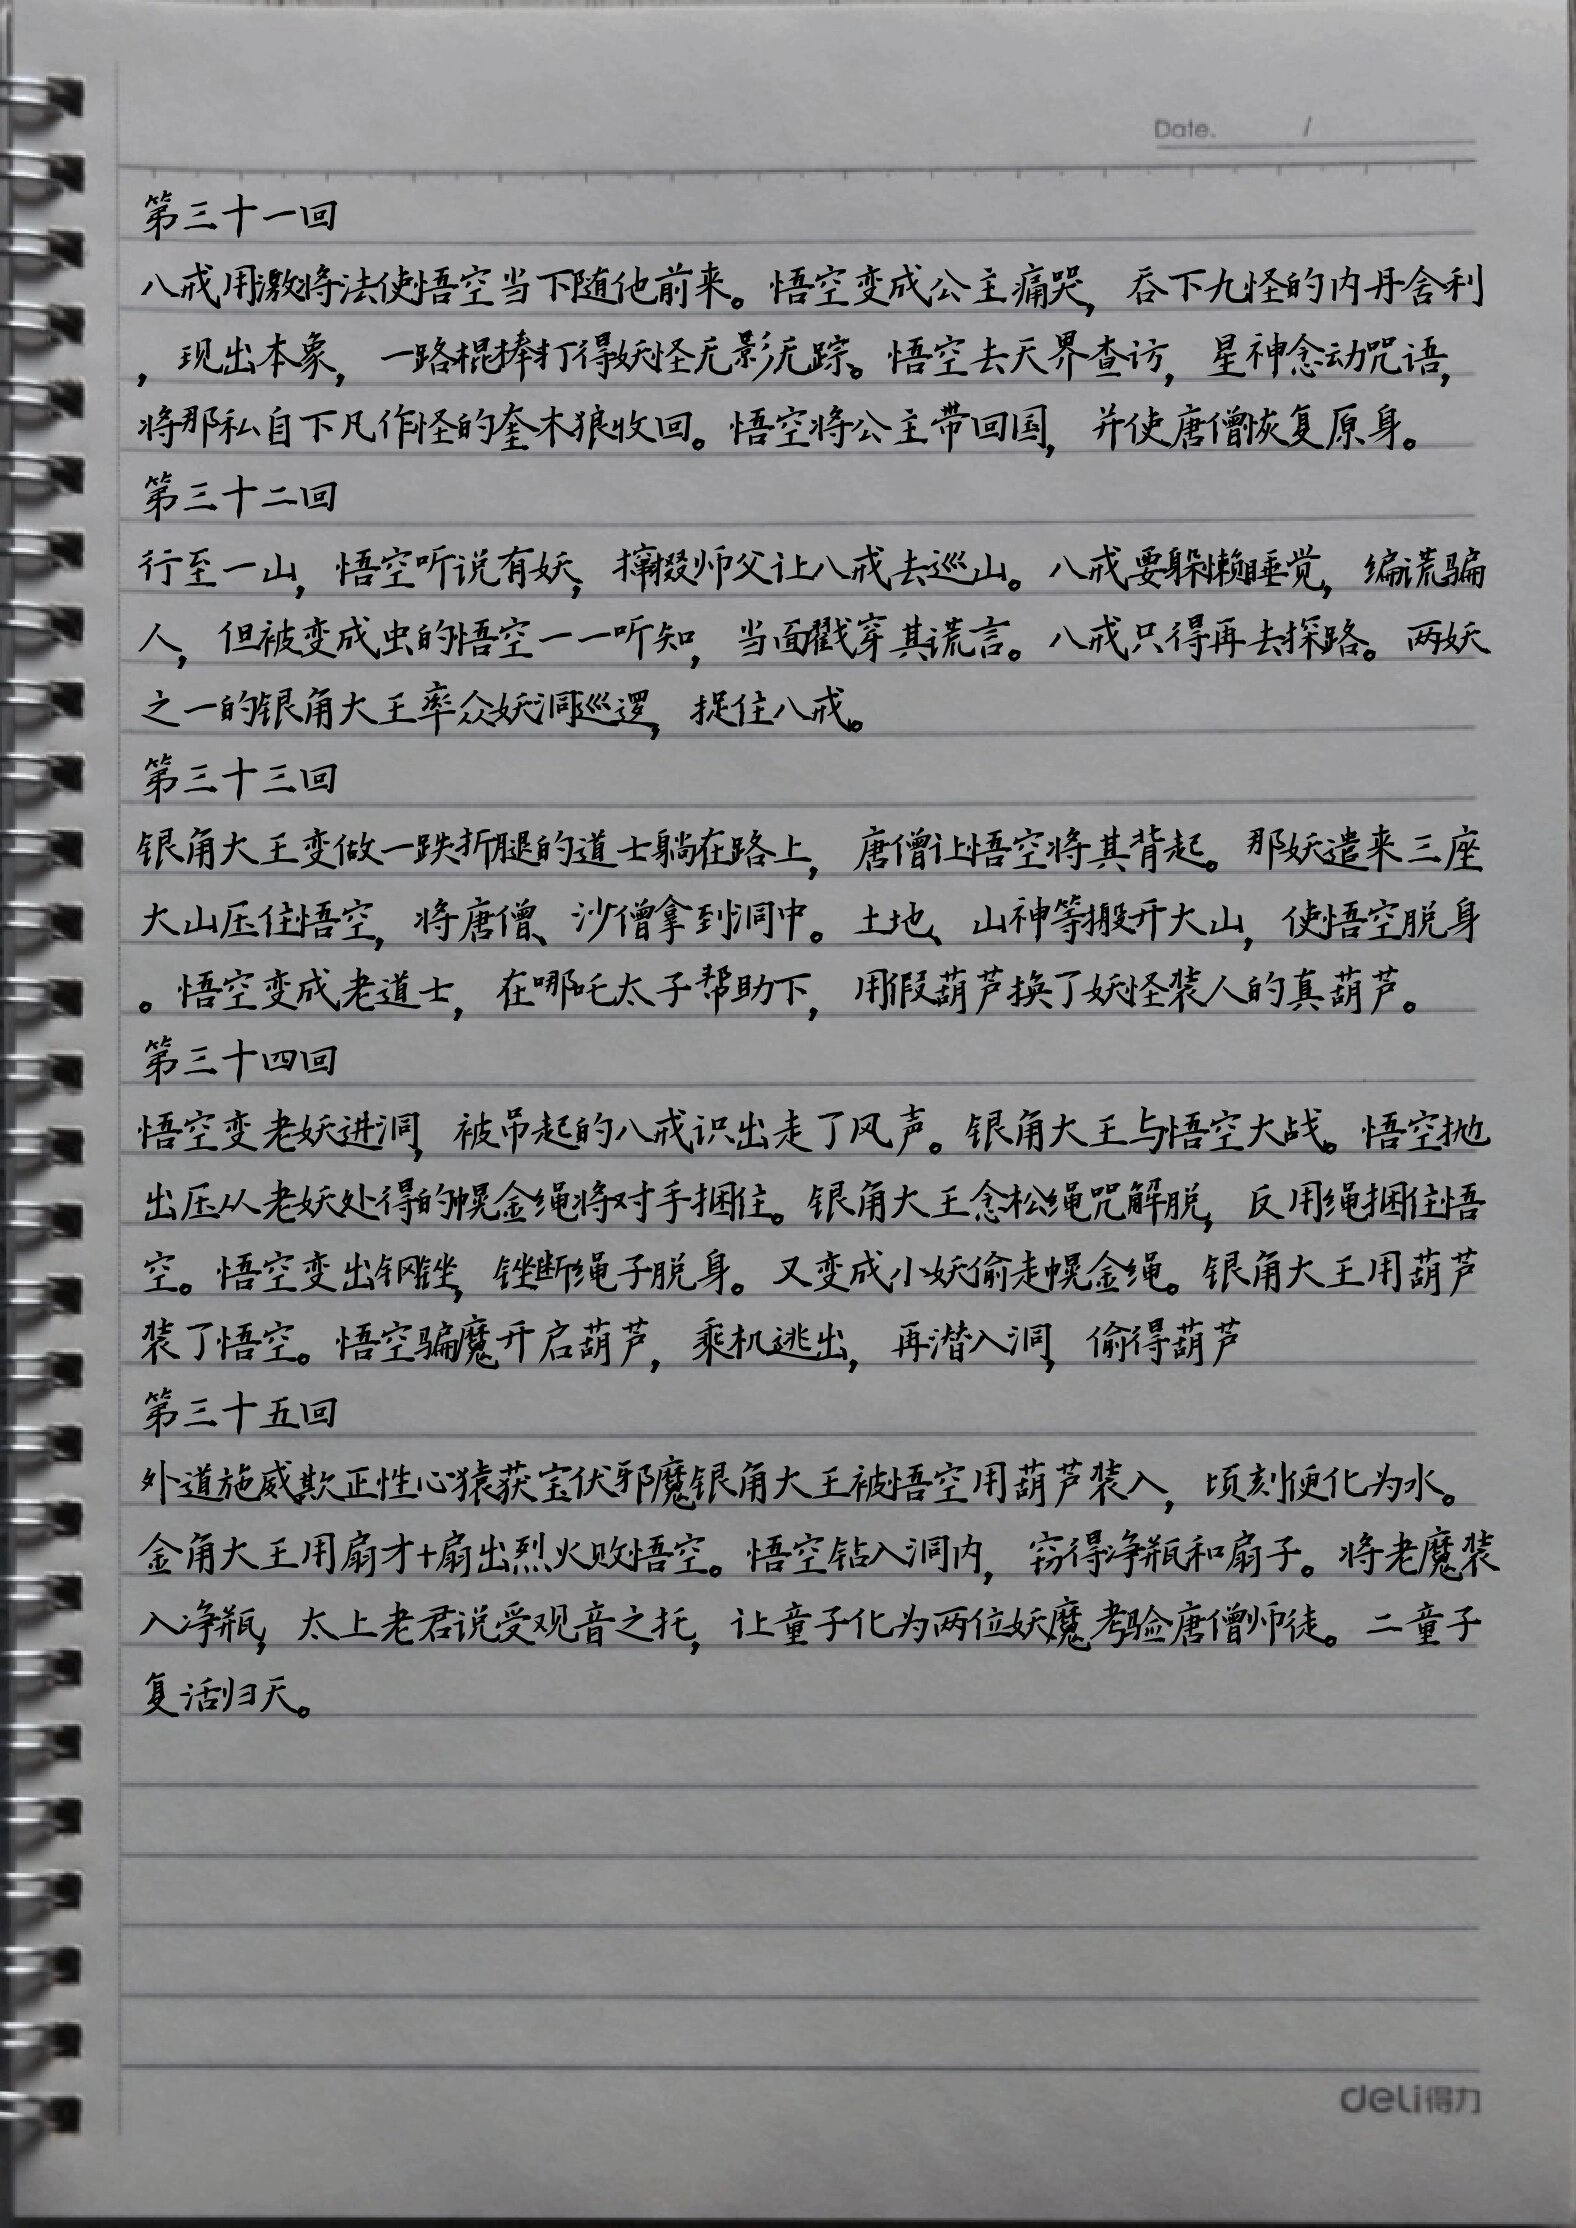 Date. /
第三十一回
八戒用激将法使悟空当下随他前来。悟空变成公主痛哭，吞下九怪的内丹舍利
，现出本象，一路棍棒打得妖怪无影无踪。悟空去天界查访，星神念动咒语，
将那私自下凡作怪的奎木狼收回。悟空将公主带回国，并使唐僧恢复原身。
第三十二回
行至一山，悟空听说有妖，撺掇师父让八戒去巡山。八戒要躲懒睡觉，编谎骗
人，但被变成虫的悟空一一听知，当面戳穿其谎言。八戒只得再去探路。两妖
之一的银角大王率众妖洞巡逻，捉住八戒。
第三十三回
银角大王变做一跌折腿的道士躺在路上，唐僧让悟空将其背起。那妖遣来三座
大山压住悟空，将唐僧、沙僧拿到洞中。土地、山神等搬开大山，使悟空脱身
。悟空变成老道士，在哪吒太子帮助下，用假葫芦换了妖怪装人的真葫芦。
第三十四回
悟空变老妖进洞，被吊起的八戒识出走了风声。银角大王与悟空大战。悟空抛
出压从老妖处得的幌金绳将对手捆住。银角大王念松绳咒解脱，反用绳捆住悟
空。悟空变出钢锉，锉断绳子脱身。又变成小妖偷走幌金绳。银角大王用葫芦
装了悟空。悟空骗魔开启葫芦，乘机逃出，再潜入洞，偷得葫芦
第三十五回
外道施威欺正性心猿获宝伏邪魔银角大王被悟空用葫芦装入，顷刻便化为水。
金角大王用扇才+扇出烈火败悟空。悟空钻入洞内，窃得净瓶和扇子。将老魔装
入净瓶，太上老君说受观音之托，让童子化为两位妖魔考验唐僧师徒。二童子
复活归天。
deli得力